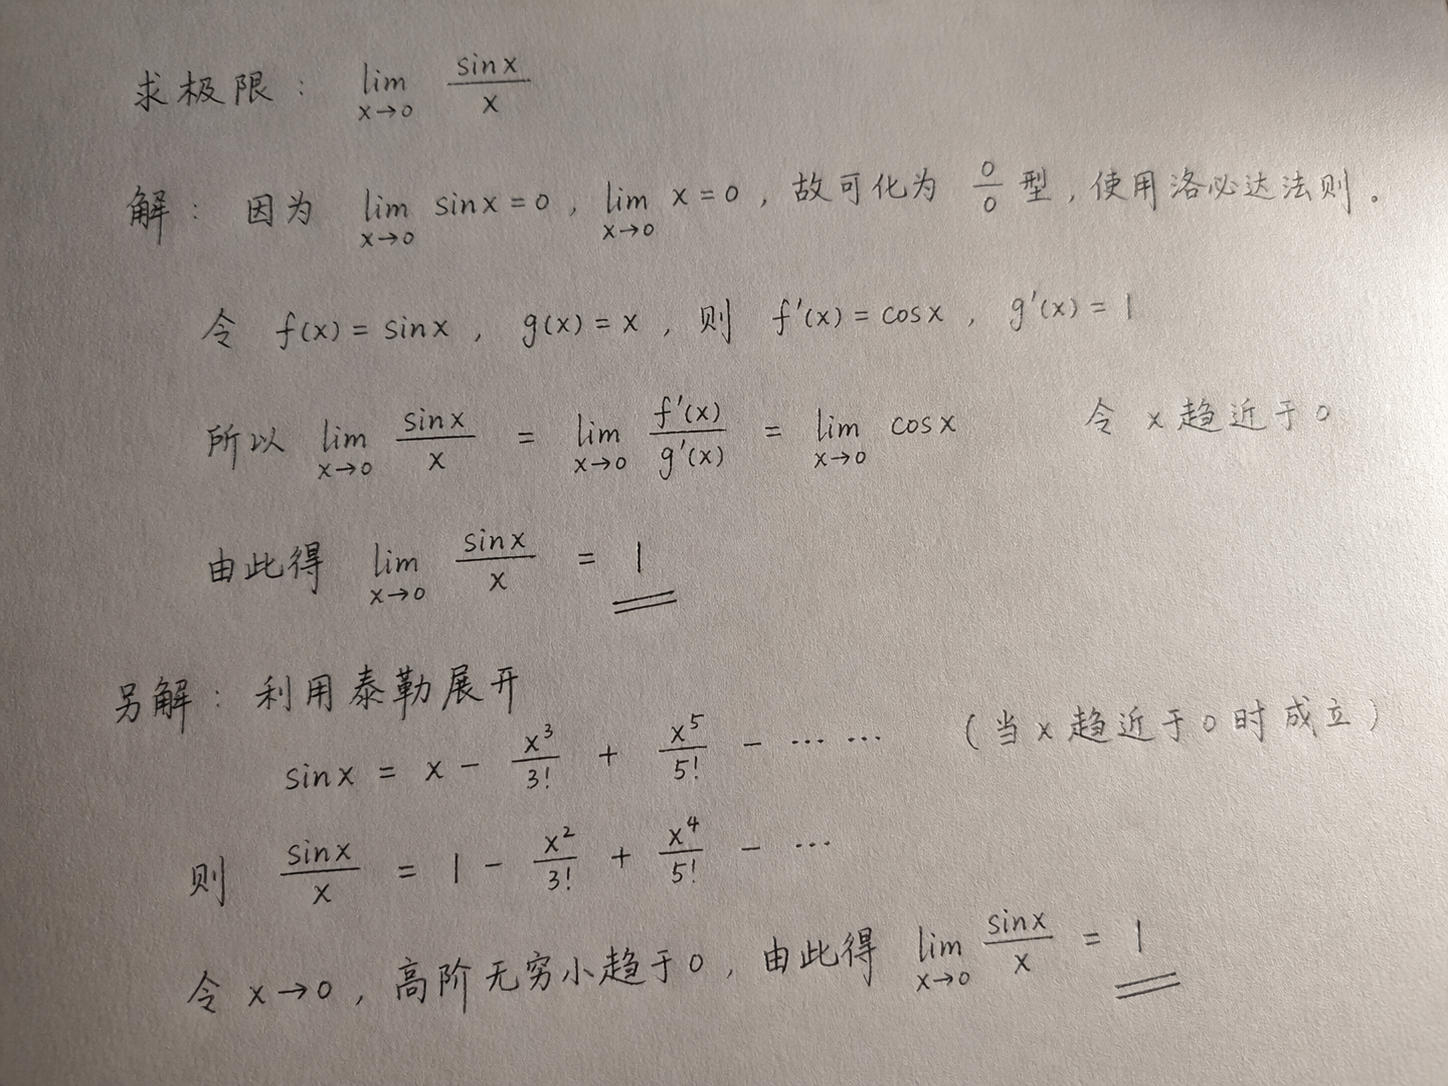 求极限： lim_{x→0} \frac{sinx}{x}
解： 因为 lim_{x→0} sinx = 0 , lim_{x→0} x = 0 , 故可化为 \frac{0}{0} 型 , 使用洛必达法则 。
令 f(x) = sinx , g(x) = x , 则 f'(x) = cosx , g'(x) = 1
所以 lim_{x→0} \frac{sinx}{x} = lim_{x→0} \frac{f'(x)}{g'(x)} = lim_{x→0} cosx 令 x 趋近于 0
由此得 lim_{x→0} \frac{sinx}{x} = 1
另解： 利用泰勒展开
sinx = x - \frac{x^3}{3!} + \frac{x^5}{5!} - … … (当 x 趋近于 0 时成立)
则 \frac{sinx}{x} = 1 - \frac{x^2}{3!} + \frac{x^4}{5!} - …
令 x→0 , 高阶无穷小趋于 0 , 由此得 lim_{x→0} \frac{sinx}{x} = 1